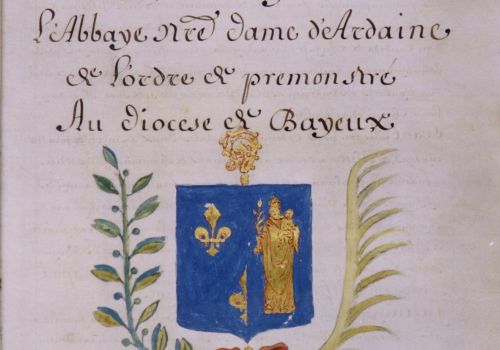 L'Abbaye Nre dame d'Ardaine
de l'ordre de premonstré
Au diocese de Bayeux